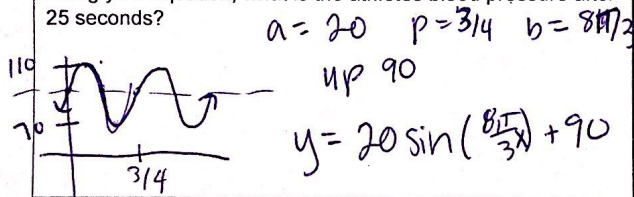 25 seconds?
a = 20 p = 3/4 b = 8π/3
up 90
110
70
3/4
y = 20 sin ( 8π/3 x) + 90